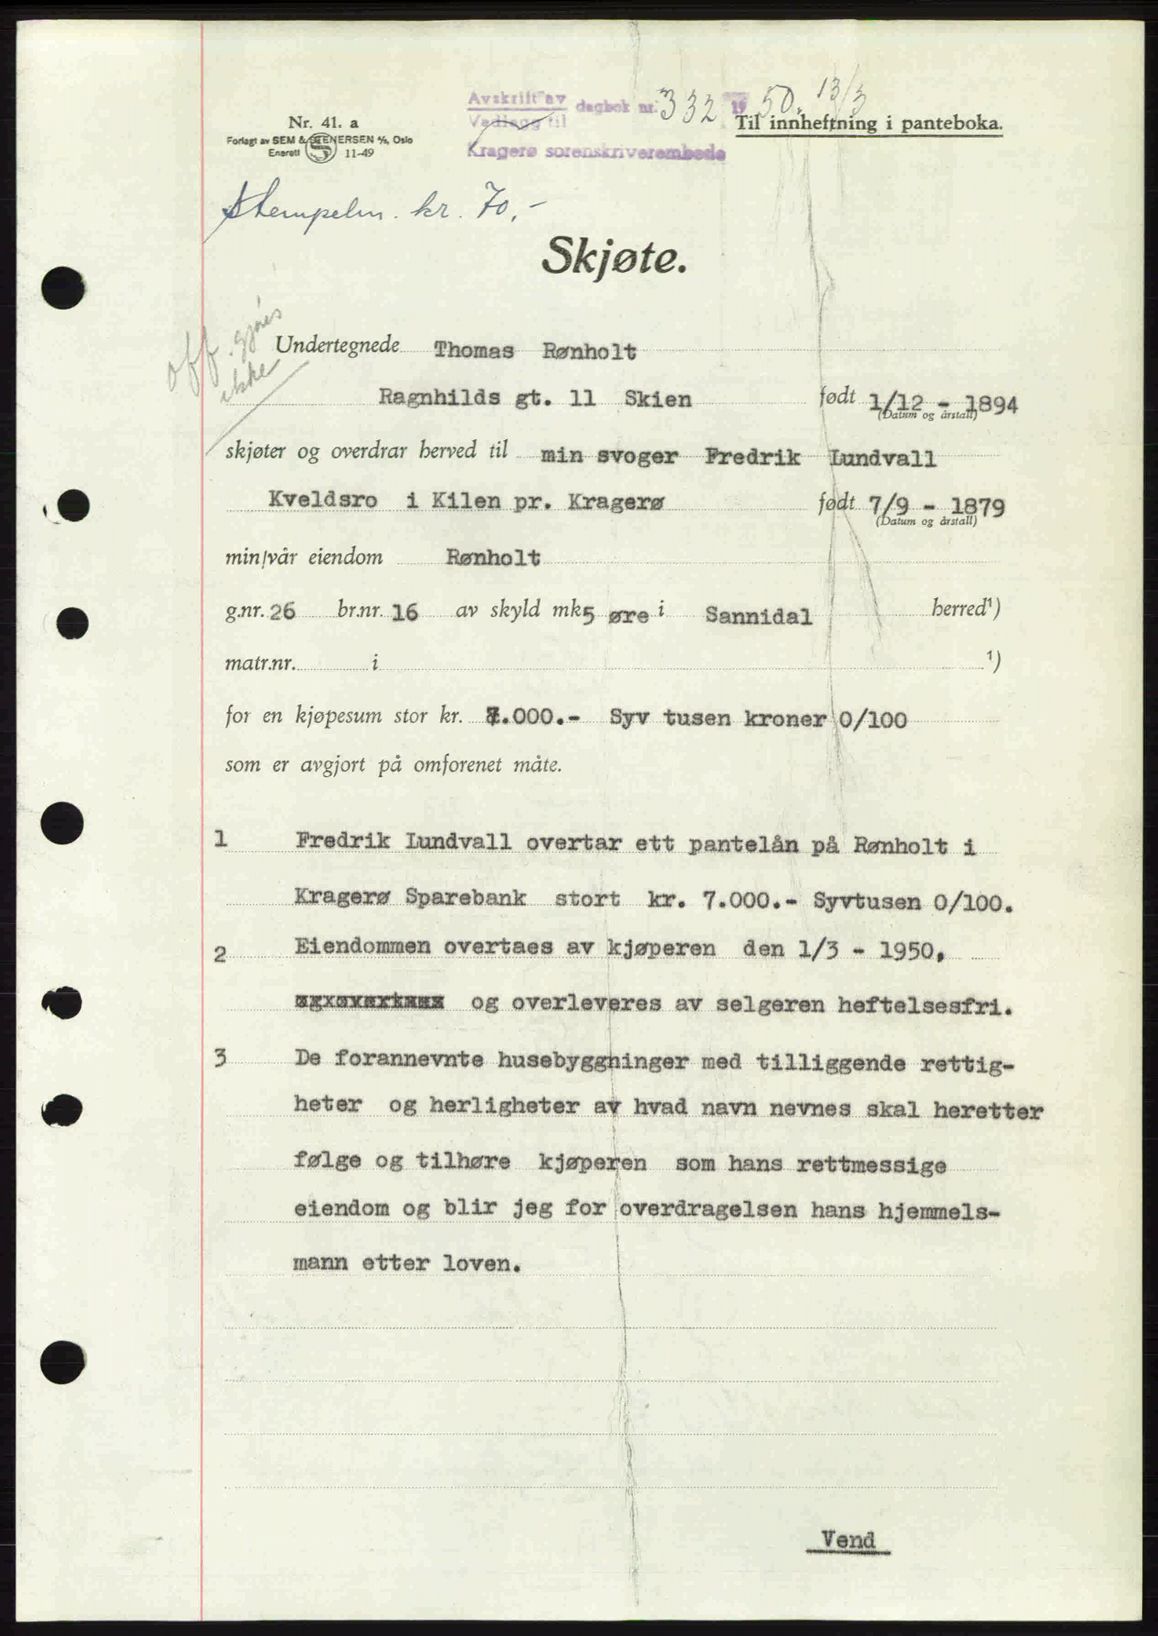 Avskrift av
Vedlegg til
dagbok nr. 332 19 50. 13/3
Kragerø sorenskriverembede
Nr. 41. a
Forlagt av SEM & STENERSEN A/S, Oslo
Enerett 11-49
Til innheftning i panteboka.
Stempelm. kr. 70,-
Skjøte.
off. gjøres
ikke
Undertegnede Thomas Rønholt
Ragnhilds gt. 11 Skien født 1/12 - 1894
(Datum og årstall)
skjøter og overdrar herved til min svoger Fredrik Lundvall
Kveldsro i Kilen pr. Kragerø født 7/9 - 1879
(Datum og årstall)
min/vår eiendom Rønholt
g.nr. 26 br.nr. 16 av skyld mk 5 øre i Sannidal herred¹)
matr.nr. i ¹)
for en kjøpesum stor kr. 7.000.- Syv tusen kroner 0/100
som er avgjort på omforenet måte.
1 Fredrik Lundvall overtar ett pantelån på Rønholt i
Kragerø Sparebank stort kr. 7.000.- Syvtusen 0/100.
2 Eiendommen overtaes av kjøperen den 1/3 - 1950,
og overleveres av selgeren heftelsesfri.
3 De forannevnte husebyggninger med tilliggende rettig-
heter og herligheter av hvad navn nevnes skal heretter
følge og tilhøre kjøperen som hans rettmessige
eiendom og blir jeg for overdragelsen hans hjemmels-
mann etter loven.
Vend